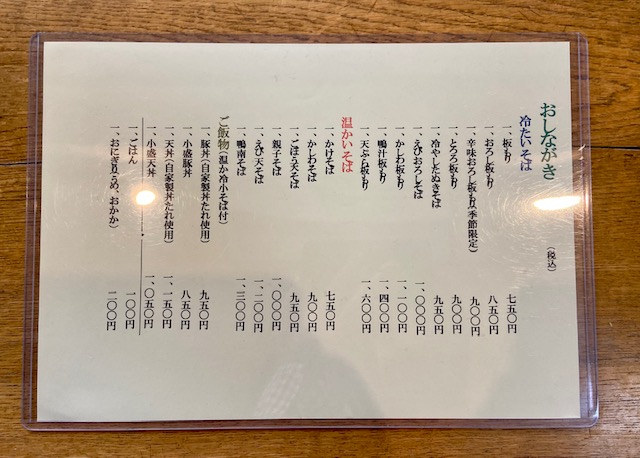 おしながき
(税込)
冷たいそば
一、板もり 七五〇円
一、おろし板もり 八五〇円
一、辛味おろし板もり(季節限定) 九〇〇円
一、とろろ板もり 九〇〇円
一、冷やしたぬきそば 九五〇円
一、えびおろしそば 一、〇〇〇円
一、かしわ板もり 一、一〇〇円
一、鴨汁板もり 一、四〇〇円
一、天ぷら板もり 一、六〇〇円
温かいそば
一、かけそば 七五〇円
一、かしわそば 九〇〇円
一、ごぼう天そば 九五〇円
一、親子そば 一、〇〇〇円
一、えび天そば 一、二〇〇円
一、鴨南そば 一、三〇〇円
ご飯物(温か冷小そば付)
一、豚丼(自家製丼たれ使用) 九五〇円
一、小盛豚丼 八五〇円
一、天丼(自家製丼たれ使用) 一、一五〇円
一、小盛天丼 一、〇五〇円
一、ごはん 一〇〇円
一、おにぎり(うめ、おかか) 二〇〇円